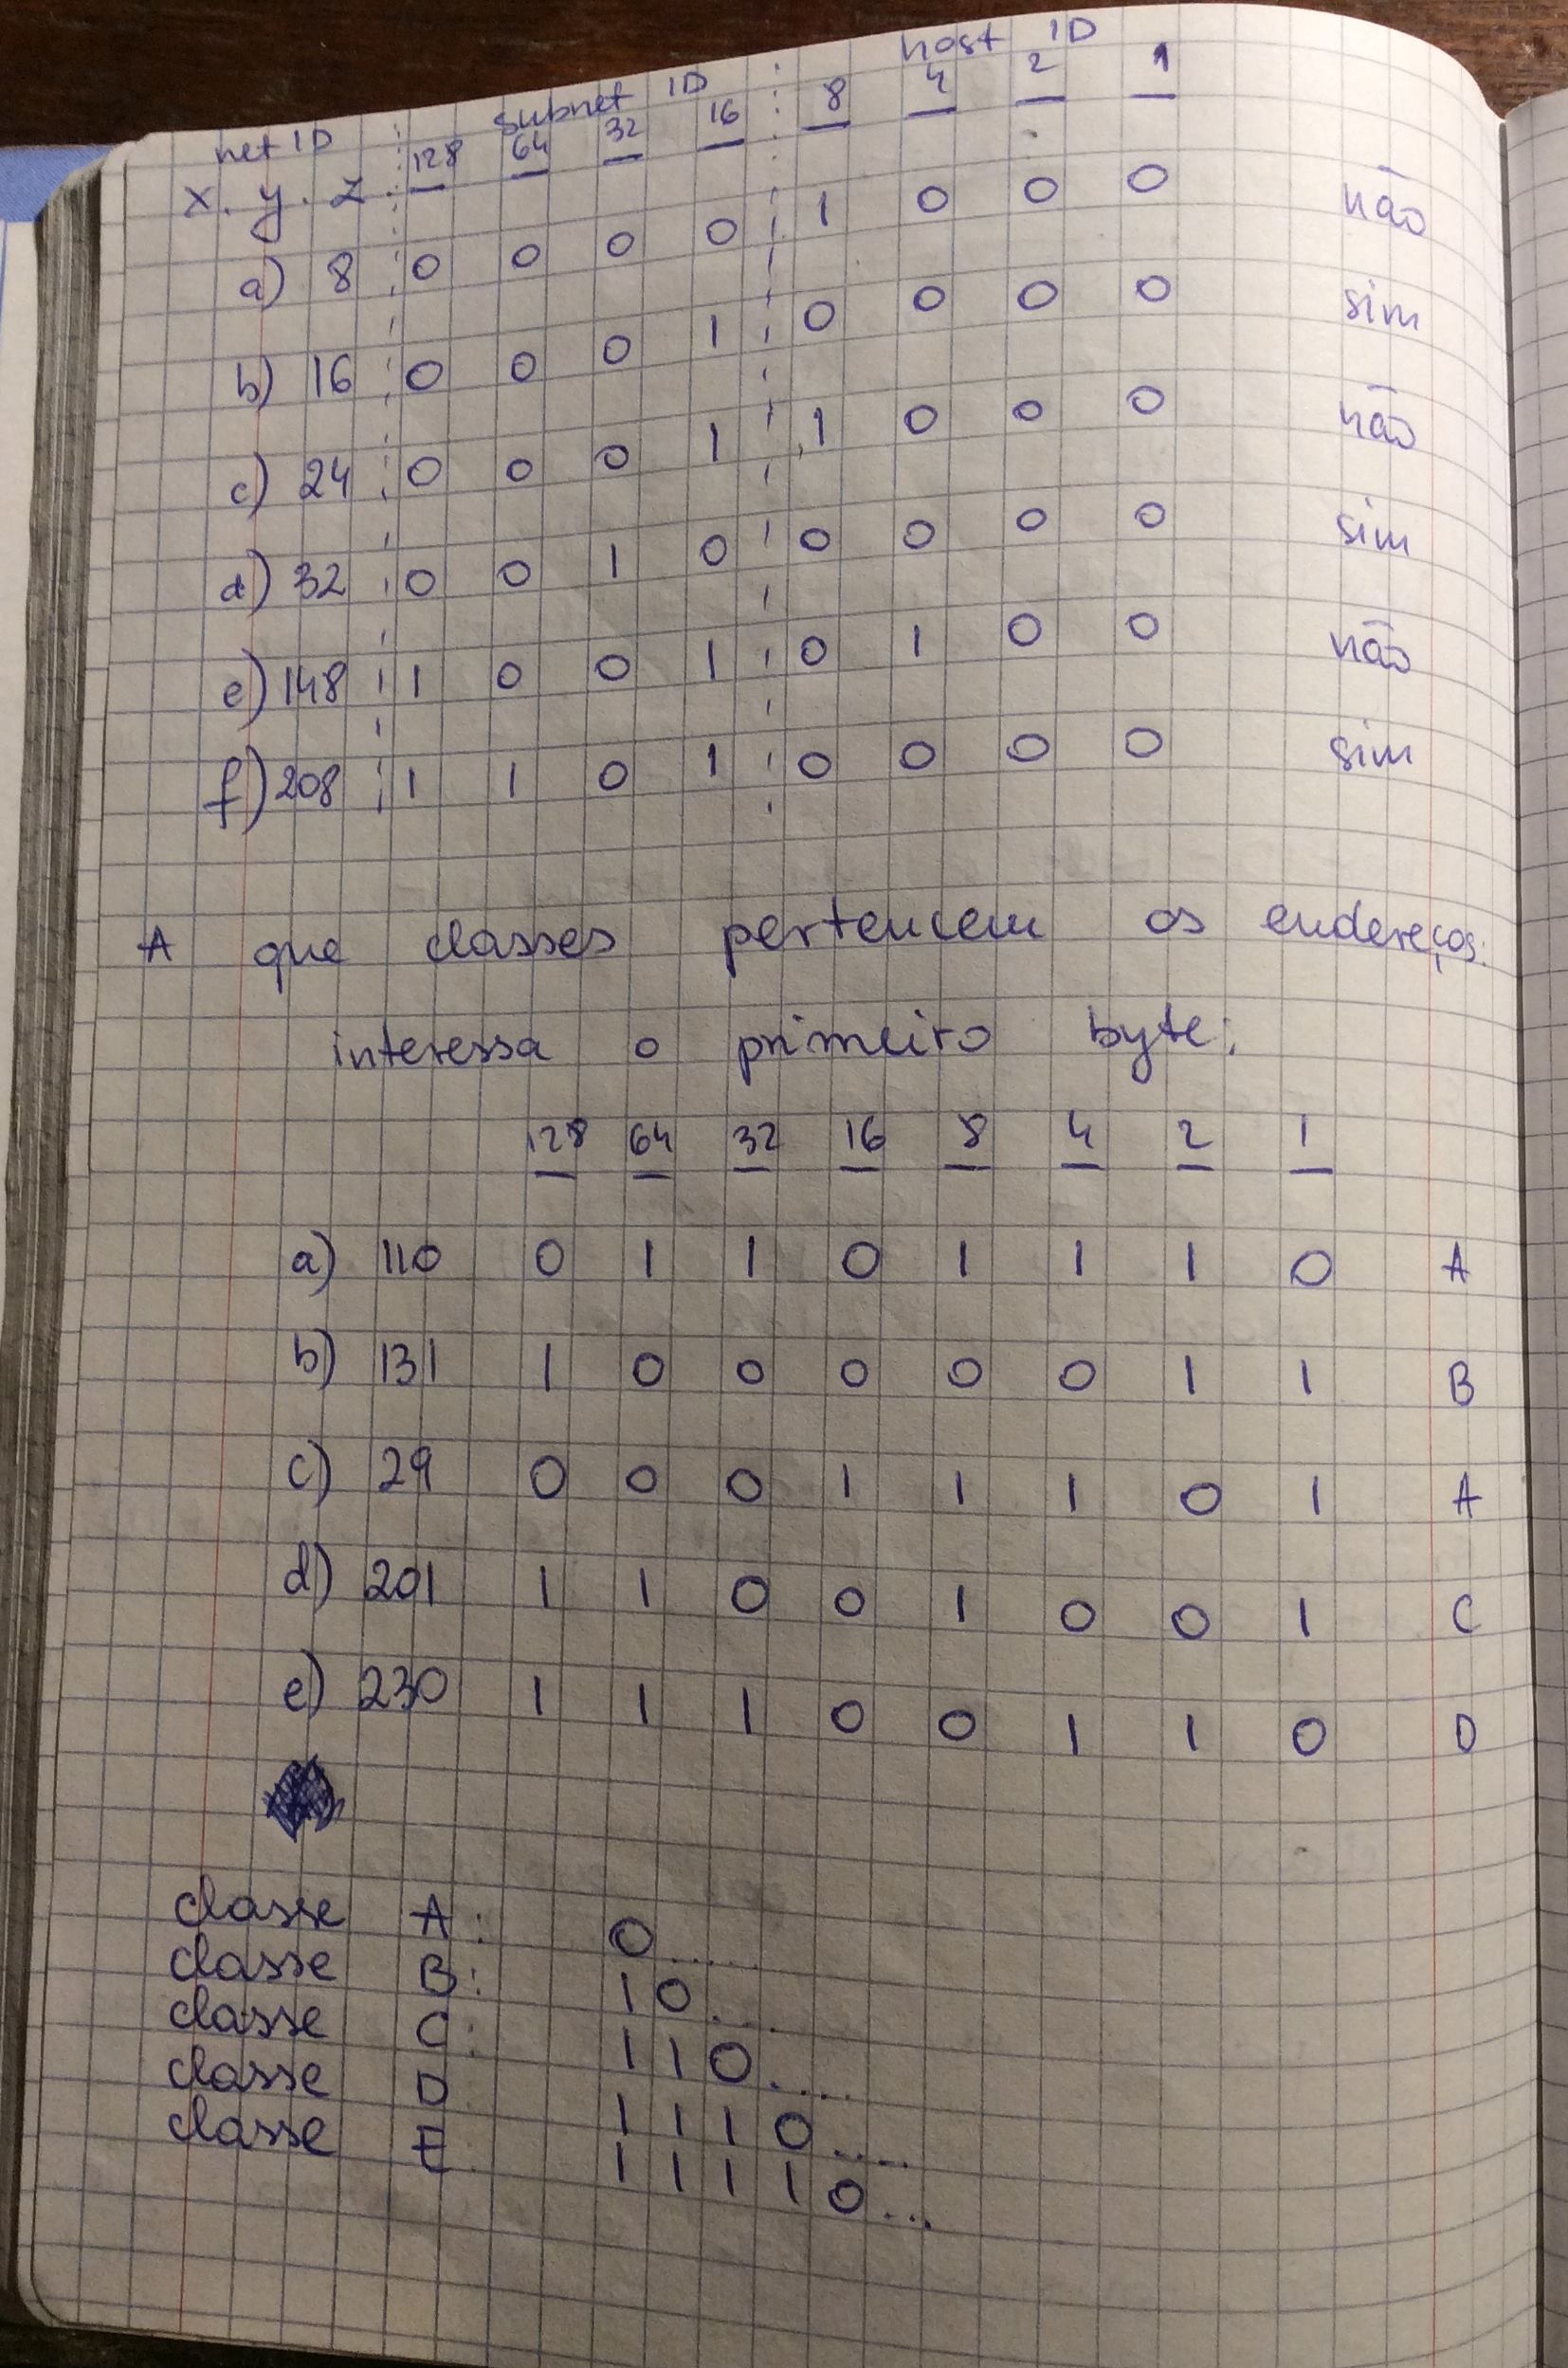 net ID subnet ID host ID
x. y. z. 128 64 32 16 8 4 2 1
a) 8 0 0 0 0 1 0 0 0 não
b) 16 0 0 0 1 0 0 0 0 sim
c) 24 0 0 0 1 1 0 0 0 não
d) 32 0 0 1 0 0 0 0 0 sim
e) 148 1 0 0 1 0 1 0 0 não
f) 208 1 1 0 1 0 0 0 0 sim
A que classes pertencem os endereços:
interessa o primeiro byte:
128 64 32 16 8 4 2 1
a) 110 0 1 1 0 1 1 1 0 A
b) 131 1 0 0 0 0 0 1 1 B
c) 29 0 0 0 1 1 1 0 1 A
d) 201 1 1 0 0 1 0 0 1 C
e) 230 1 1 1 0 0 1 1 0 D
classe A: 0.....
classe B: 10....
classe C: 110.....
classe D 1110.....
classe E 11110...